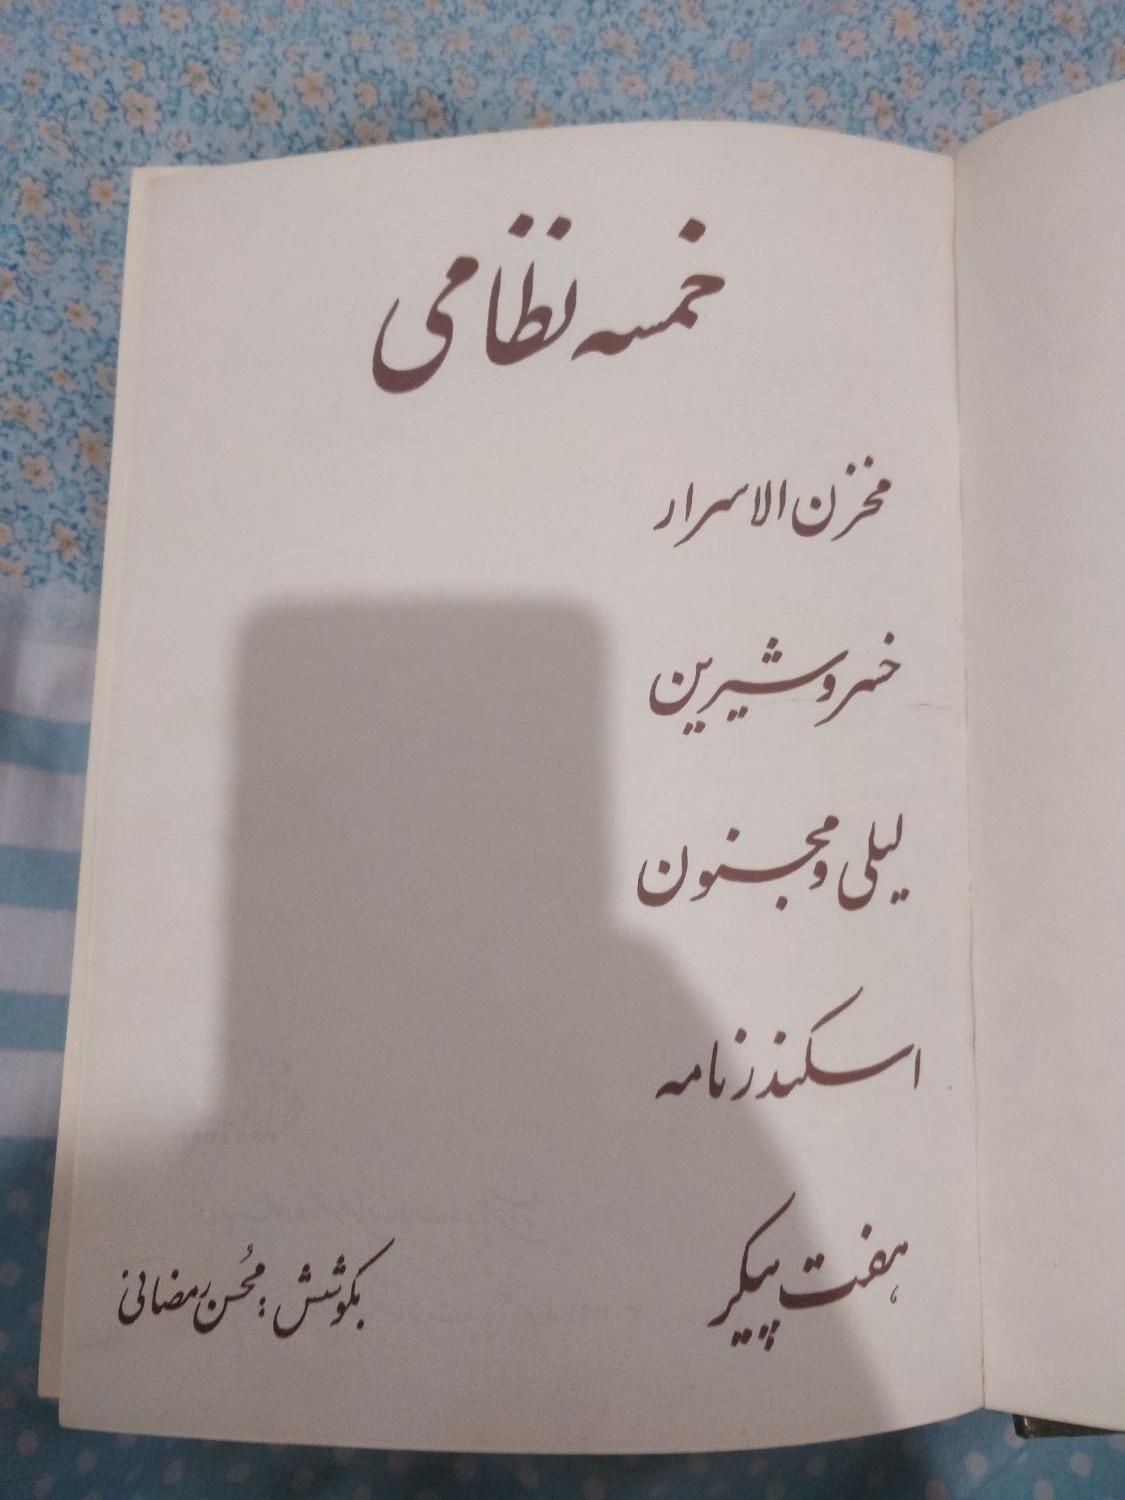 خمسه نظامی
مخزن الاسرار
خسرو شیرین
لیلی و مجنون
اسکندرنامه
هفت پیکر
بکوشش : محسن رمضانی